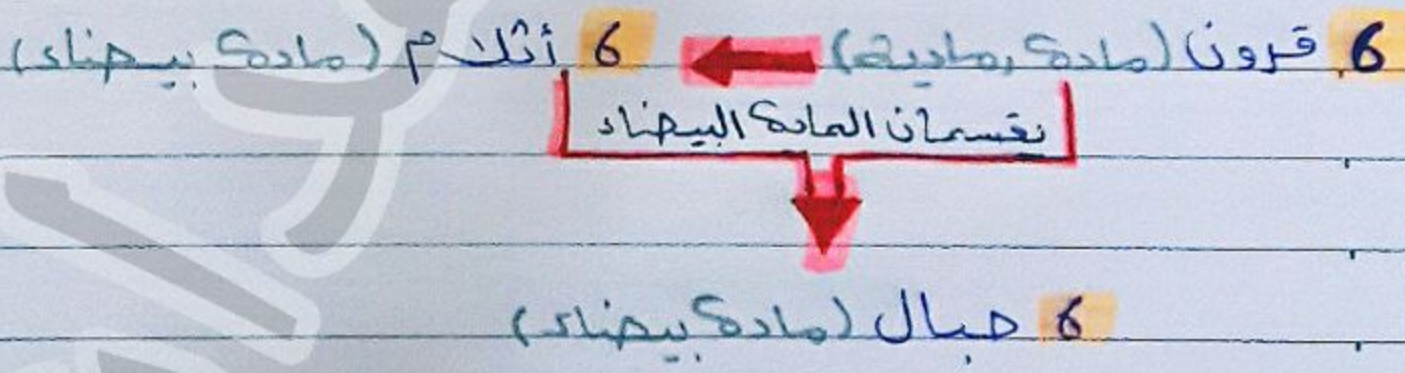 6 قرون (مادة رمادية) 6 أثلام (مادة بيضاء)
تقسمان المادة البيضاء
6 حبال (مادة بيضاء)